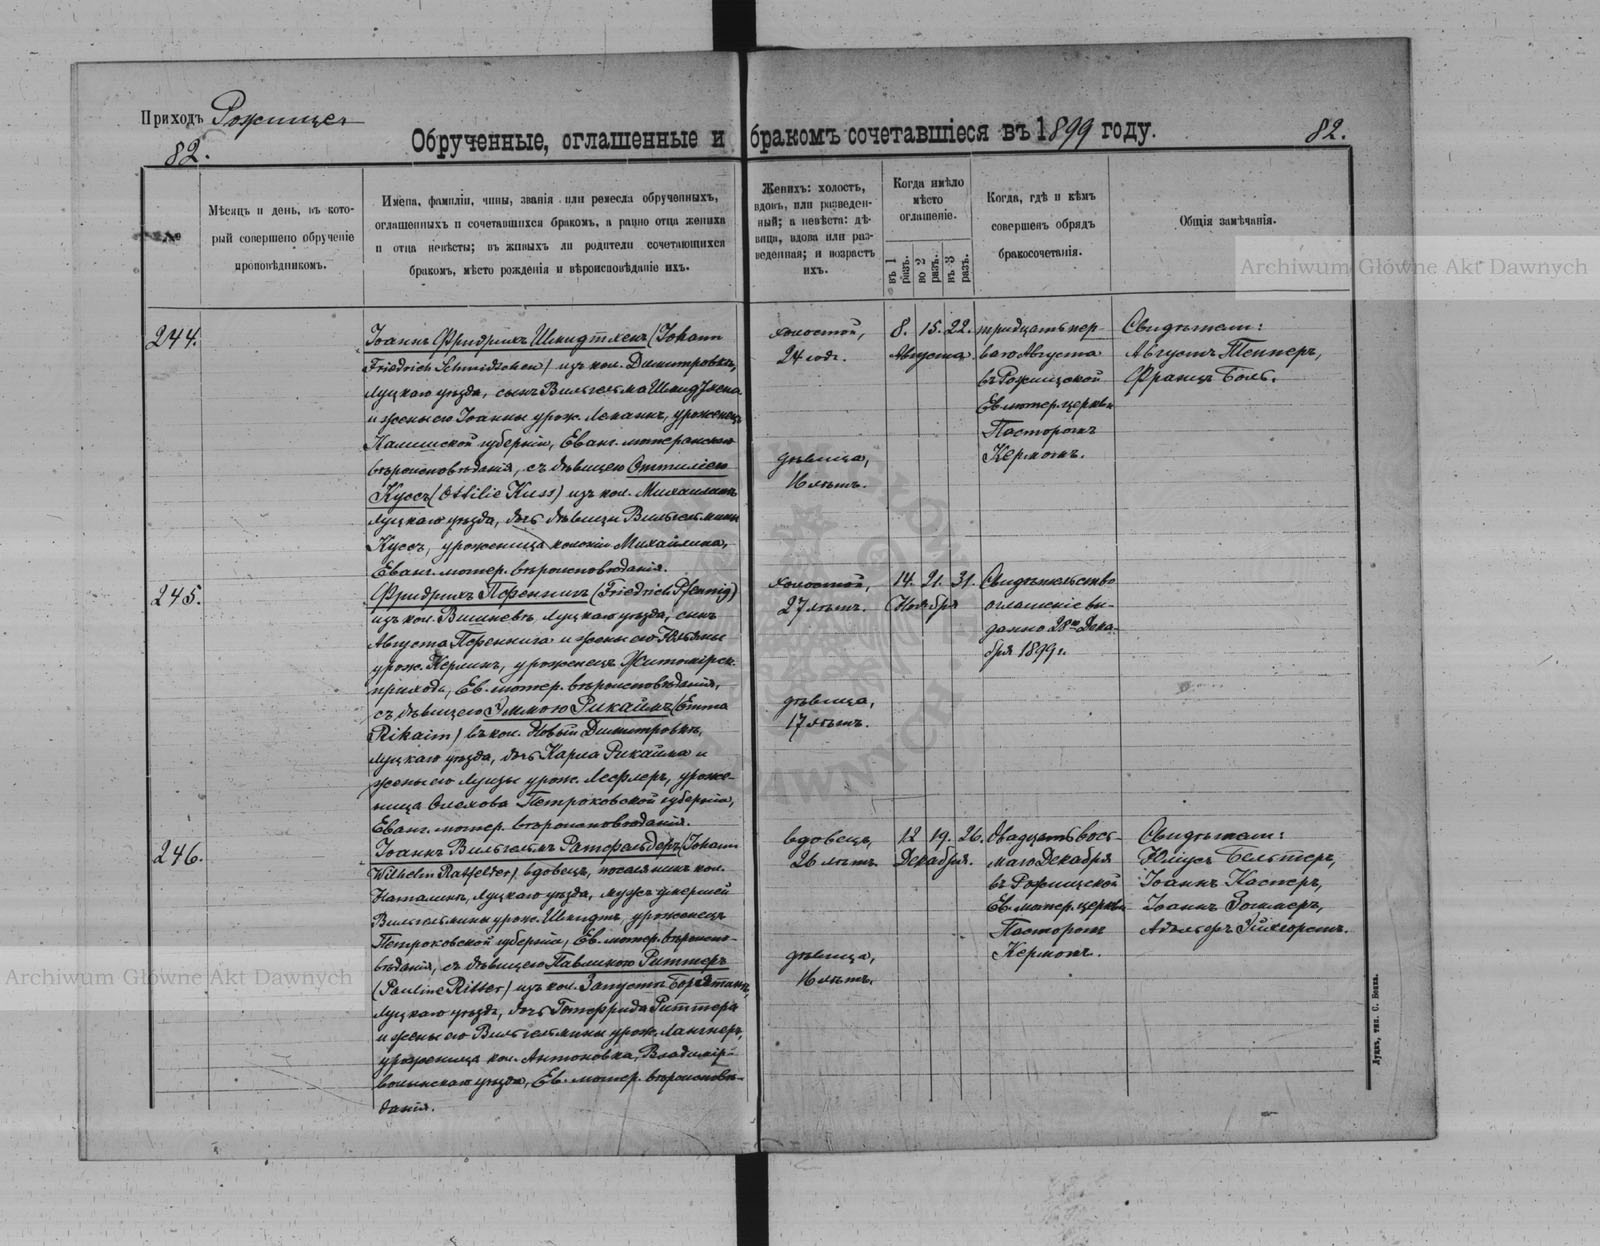 Приходъ Рожище
82.
Обрученные, оглашенные и бракомъ сочетавшіеся въ 1899 году.
82.
№
Мѣсяцъ и день, въ кото-
рый совершено обрученіе
проповѣдникомъ.
Имена, фамиліи, чины, званія или ремесла обрученныхъ,
оглашенныхъ и сочетавшихся бракомъ, а равно отца жениха
и отца невѣсты; въ живыхъ ли родители сочетающихся
бракомъ, мѣсто рожденія и вѣроисповѣданіе ихъ.
Женихъ: холостъ,
вдовъ, или разведен-
ный; а невѣста: дѣ-
вица, вдова или раз-
веденная; и возрастъ
ихъ.
Когда имѣло
мѣсто
оглашеніе.
въ 1 разъ.
во 2 разъ.
въ 3 разъ.
Когда, гдѣ и кѣмъ
совершенъ обрядъ
бракосочетанія.
Общія замѣчанія.
244.
Іоаннъ Фридрихъ Шмидтхенъ (Johann
Friedrich Schmidtchen) изъ кол. Димитровка,
Луцкаго уѣзда, сынъ Вильгельма Шмидтхена
и жены его Іоанны урож. Леманнъ, уроженецъ
Калишской губерніи, Еванг. лютеранскаго
вѣроисповѣданія, съ дѣвицею Оттиліею
Куссъ (Ottilie Kuss) изъ кол. Михайловка
Луцкаго уѣзда, дочь дѣвицы Вильгельмины
Куссъ, уроженица колоніи Михайлина,
Еванг. лютер. вѣроисповѣданія.
холостой,
24 годъ.
дѣвица,
16 лѣтъ.
8. 15. 22.
Августа
тридцать пер-
ваго Августа
въ Рожищской
Ев. лютер. церкви
Пасторомъ
Кермомъ.
Свидѣтели:
Августъ Теппер,
Францъ Боль.
245.
Фридрихъ Пфеннигъ (Friedrich Pfennig)
изъ кол. Вишневъ, Луцкаго уѣзда, сынъ
Августа Пфеннига и жены его Юльяны
урож. Керлинъ, уроженецъ Житомірск.
прихода, Ев. лютер. вѣроисповѣданія,
съ дѣвицею Эммою Рикаймъ (Emma
Rikaim) въ кол. Новый Димитровка,
Луцкаго уѣзда, дочь Карла Рикайма и
жены его Луизы урож. Лефлеръ, уроже-
ница Олехова Петроковской губерніи,
Еванг. лютер. вѣроисповѣданія.
холостой,
27 лѣтъ.
дѣвица,
17 лѣтъ.
14. 21. 31.
Ноября
Свидѣтельство
оглашеніе вы-
дано 28го Дека-
бря 1899 г.
246.
Іоаннъ Вильгельмъ Ратфельдеръ (Johann
Wilhelm Ratfelder) вдовецъ, поселянинъ кол.
Наталинъ, Луцкаго уѣзда, мужъ умершей
Вильгельмины урож. Шмидтъ, уроженецъ
Петроковской губерніи, Ев. лютер. вѣроиспо-
вѣданія, съ дѣвицею Павлиною Риттеръ
(Pauline Ritter) изъ кол. Запустъ Борятинъ,
Луцкаго уѣзда, дочь Готфрида Риттера
и жены его Вильгельмины урож. Лангнеръ,
уроженица кол. Антоновка, Владимір-
волынскаго уѣзда, Ев. лютер. вѣроисповѣ-
данія.
вдовецъ,
26 лѣтъ
дѣвица,
16 лѣтъ.
12 19. 26.
Декабря.
Двадцать вось-
маго Декабря
въ Рожищской
Ев. лютер. церкви
Пасторомъ
Кермомъ.
Свидѣтели:
Юліусъ Бельтеръ,
Іоаннъ Касперъ,
Іоаннъ Гошлеръ,
Адольфъ Эйхгорстъ.
Луцкъ, тип. С. Бокка.
Archiwum Główne Akt Dawnych
Archiwum Główne Akt Dawnych